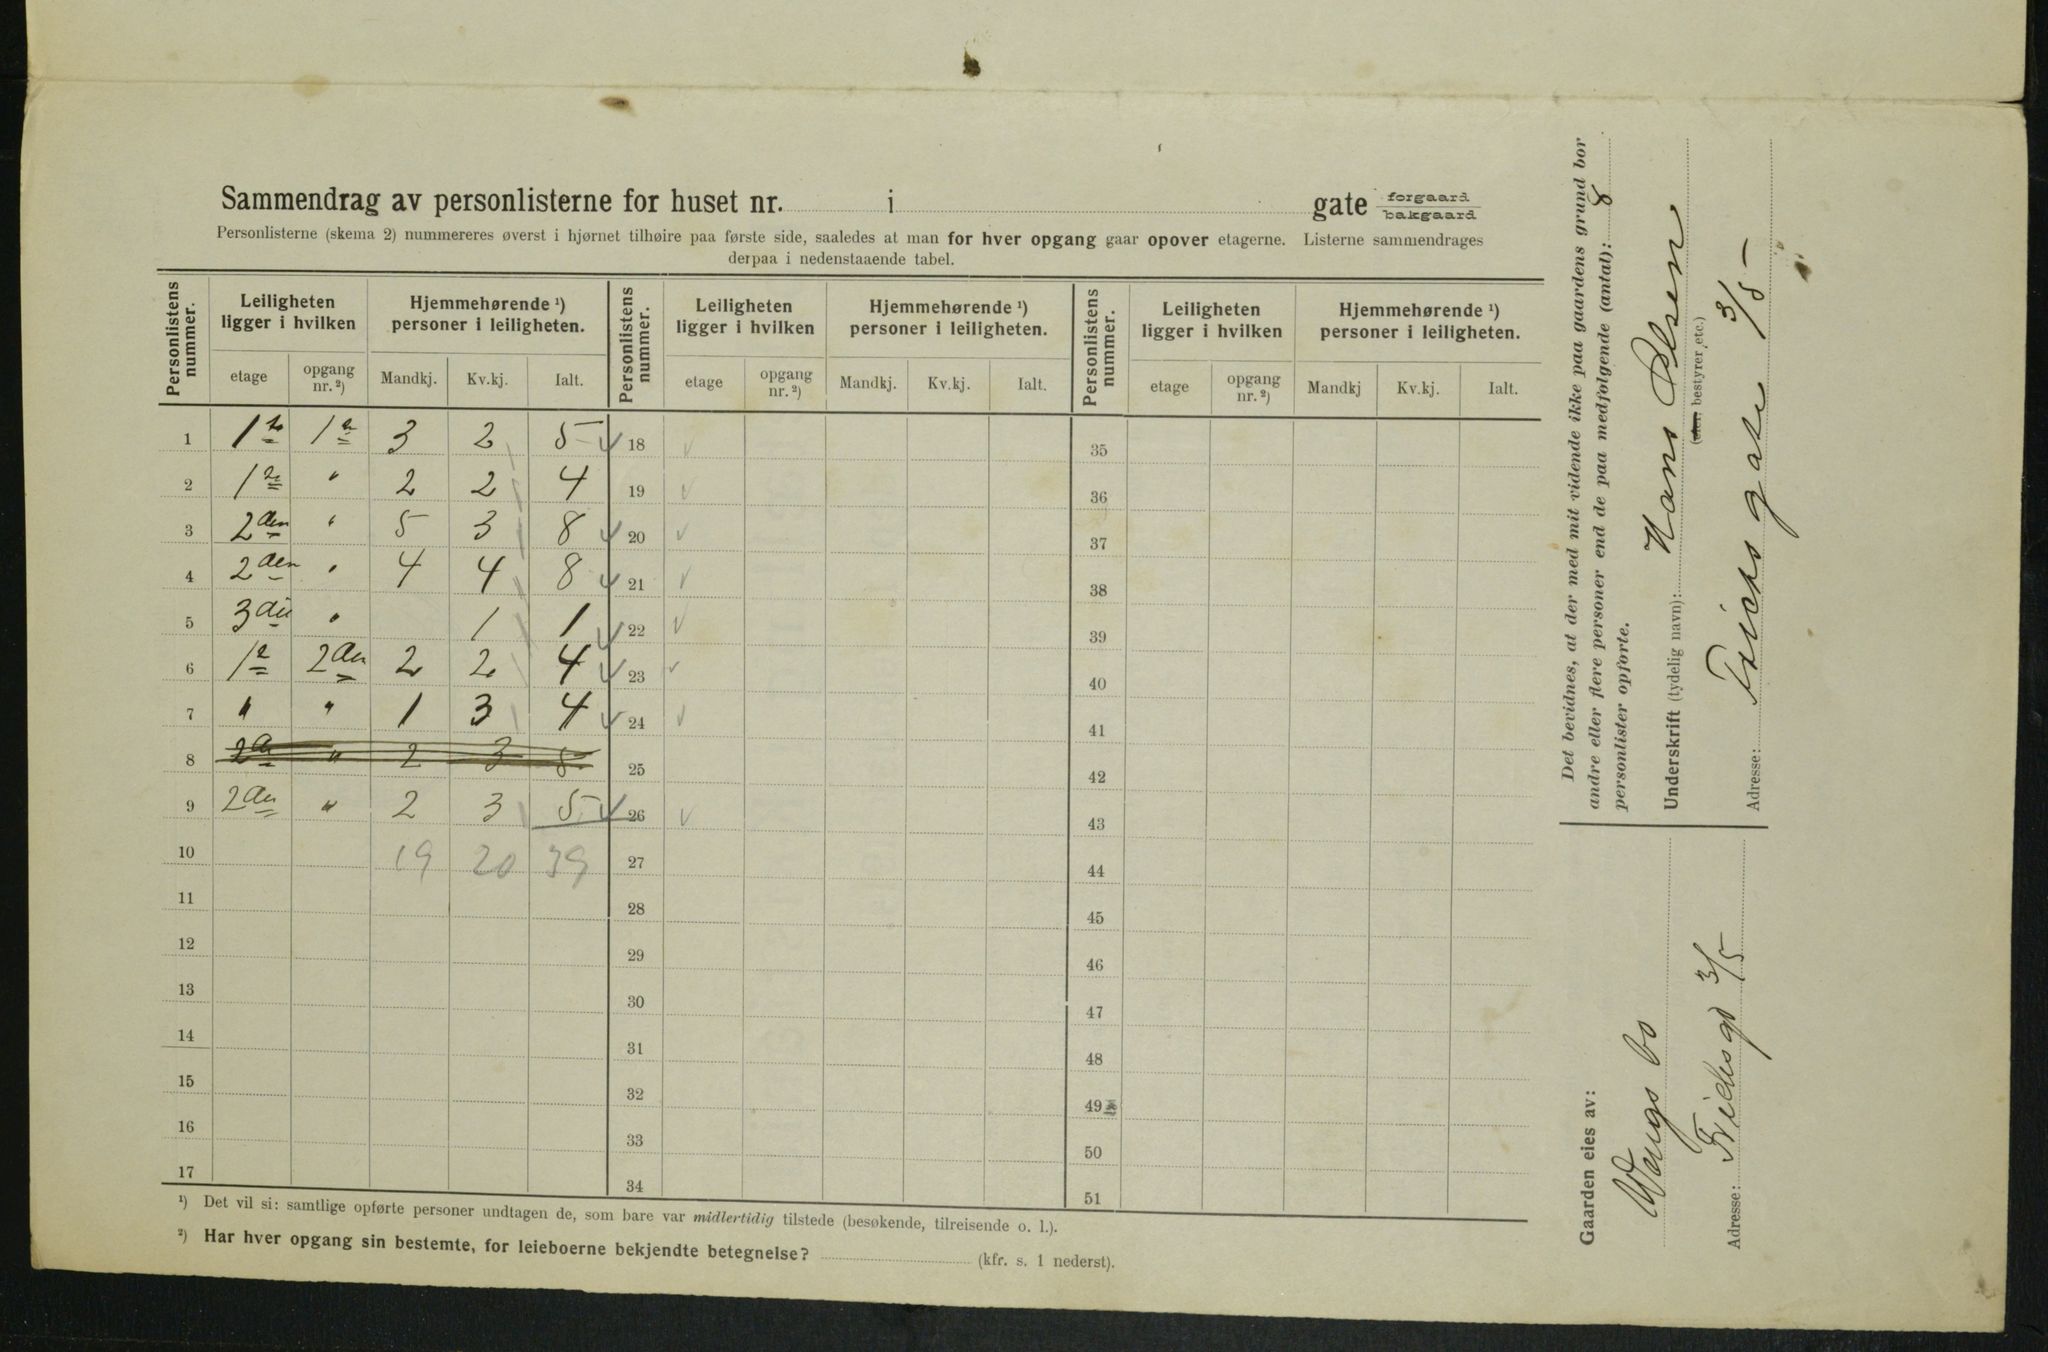 Sammendrag av personlisterne for huset nr. i gate forgaard bakgaard
Personlisterne (skema 2) nummereres øverst i hjørnet tilhøire paa første side, saaledes at man for hver opgang gaar opover etagerne. Listerne sammendrages
derpaa i nedenstaaende tabel.
Personlistens nummer. Leiligheten ligger i hvilken Hjemmehørende ¹) personer i leiligheten. Personlistens nummer. Leiligheten ligger i hvilken Hjemmehørende ¹) personer i leiligheten. Personlistens nummer. Leiligheten ligger i hvilken Hjemmehørende ¹) personer i leiligheten.
etage opgang nr. ²) Mandkj. Kv.kj. Ialt. etage opgang nr. ²) Mandkj. Kv.kj. Ialt. etage opgang nr. ²) Mandkj Kv.kj. Ialt.
1 1te 1e 3 2 5 18 35
2 1te " 2 2 4 19 36
3 2den " 5 3 8 20 37
4 2den " 4 4 8 21 38
5 3die " 1 1 22 39
6 1e 2den 2 2 4 23 40
7 " " 1 3 4 24 41
8 2den " 2 3 5 25 42
9 2den " 2 3 5 26 43
10 19 20 39 27 44
11 28 45
12 29 46
13 30 47
14 31 48
15 32 49
16 33 50
17 34 51
¹) Det vil si: samtlige opførte personer undtagen de, som bare var midlertidig tilstede (besøkende, tilreisende o. l.).
²) Har hver opgang sin bestemte, for leieboerne bekjendte betegnelse? (kfr. s. 1 nederst).
Det bevidnes, at der med mit vidende ikke paa gaardens grund bor
andre eller flere personer end de paa medfølgende (antal): 8
personlister opførte.
Underskrift (tydelig navn): Hans Olsen
(eier, bestyrer etc.)
Adresse: Frichs gate 3/5
Gaarden eies av:
Waugs bo
Adresse: Frichsgd 3/5